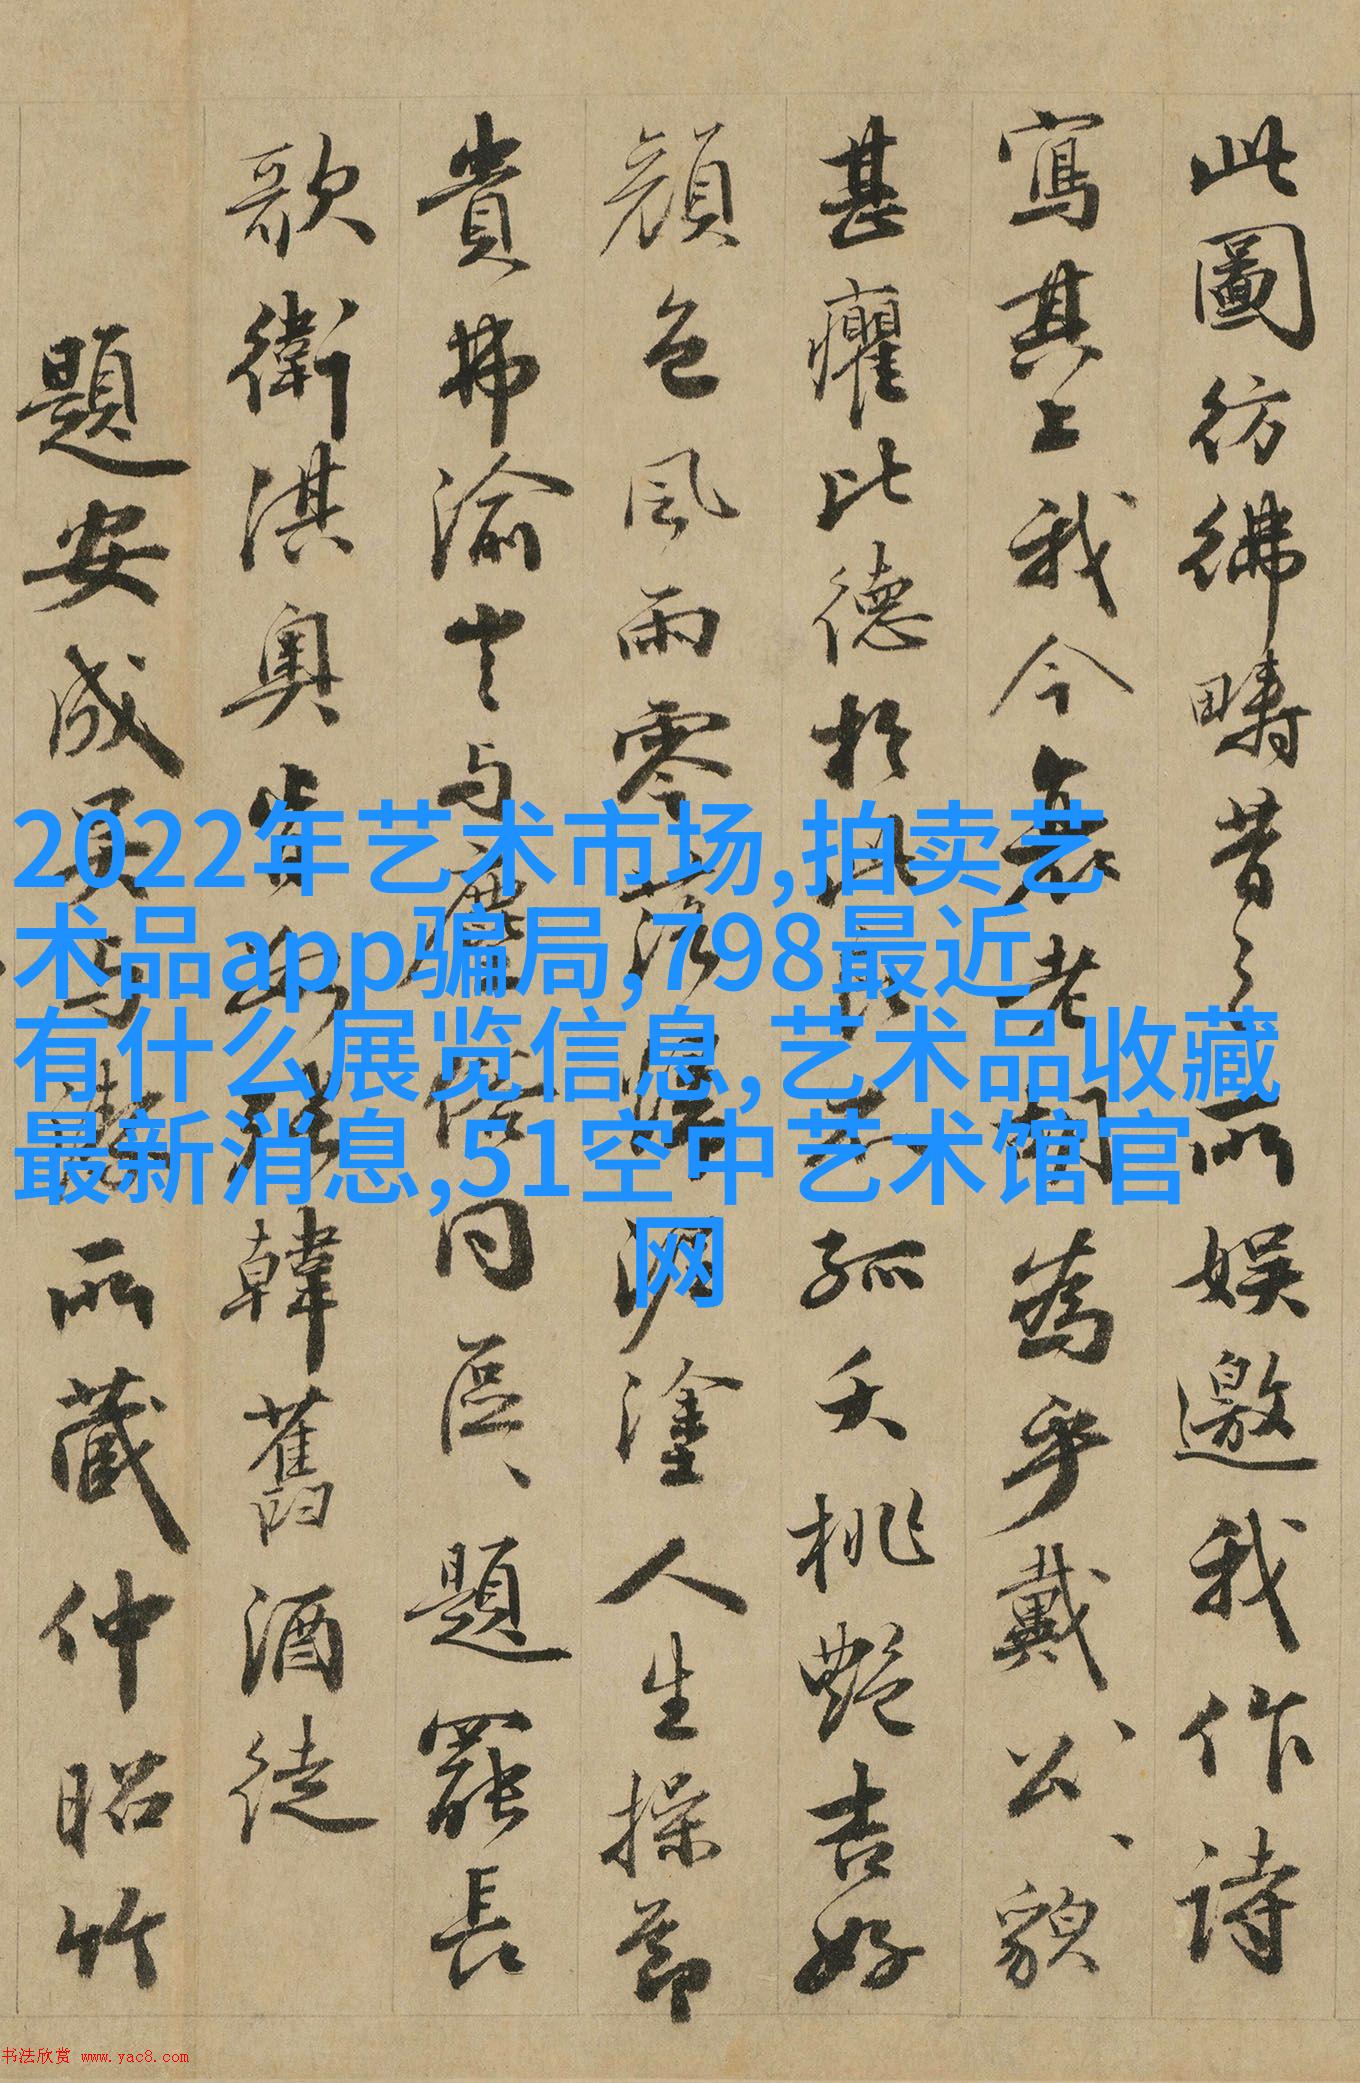 此圖彷彿疇昔之所娱邀我作诗
寫其上我今衰老胡為乎戴公貌
甚癯比德於
孤夭桃艷吉好
顔色風雨零落
塗人生操節
貴弗渝
与
同區題罷長
歌衛淇奥
韓舊酒徒
題安成
所藏仲昭竹
2022年艺术市场,拍卖艺
术品app骗局,798最近
有什么展览信息,艺术品收藏
最新消息,51空中艺术馆官
网
书法欣赏 www.yac8.com